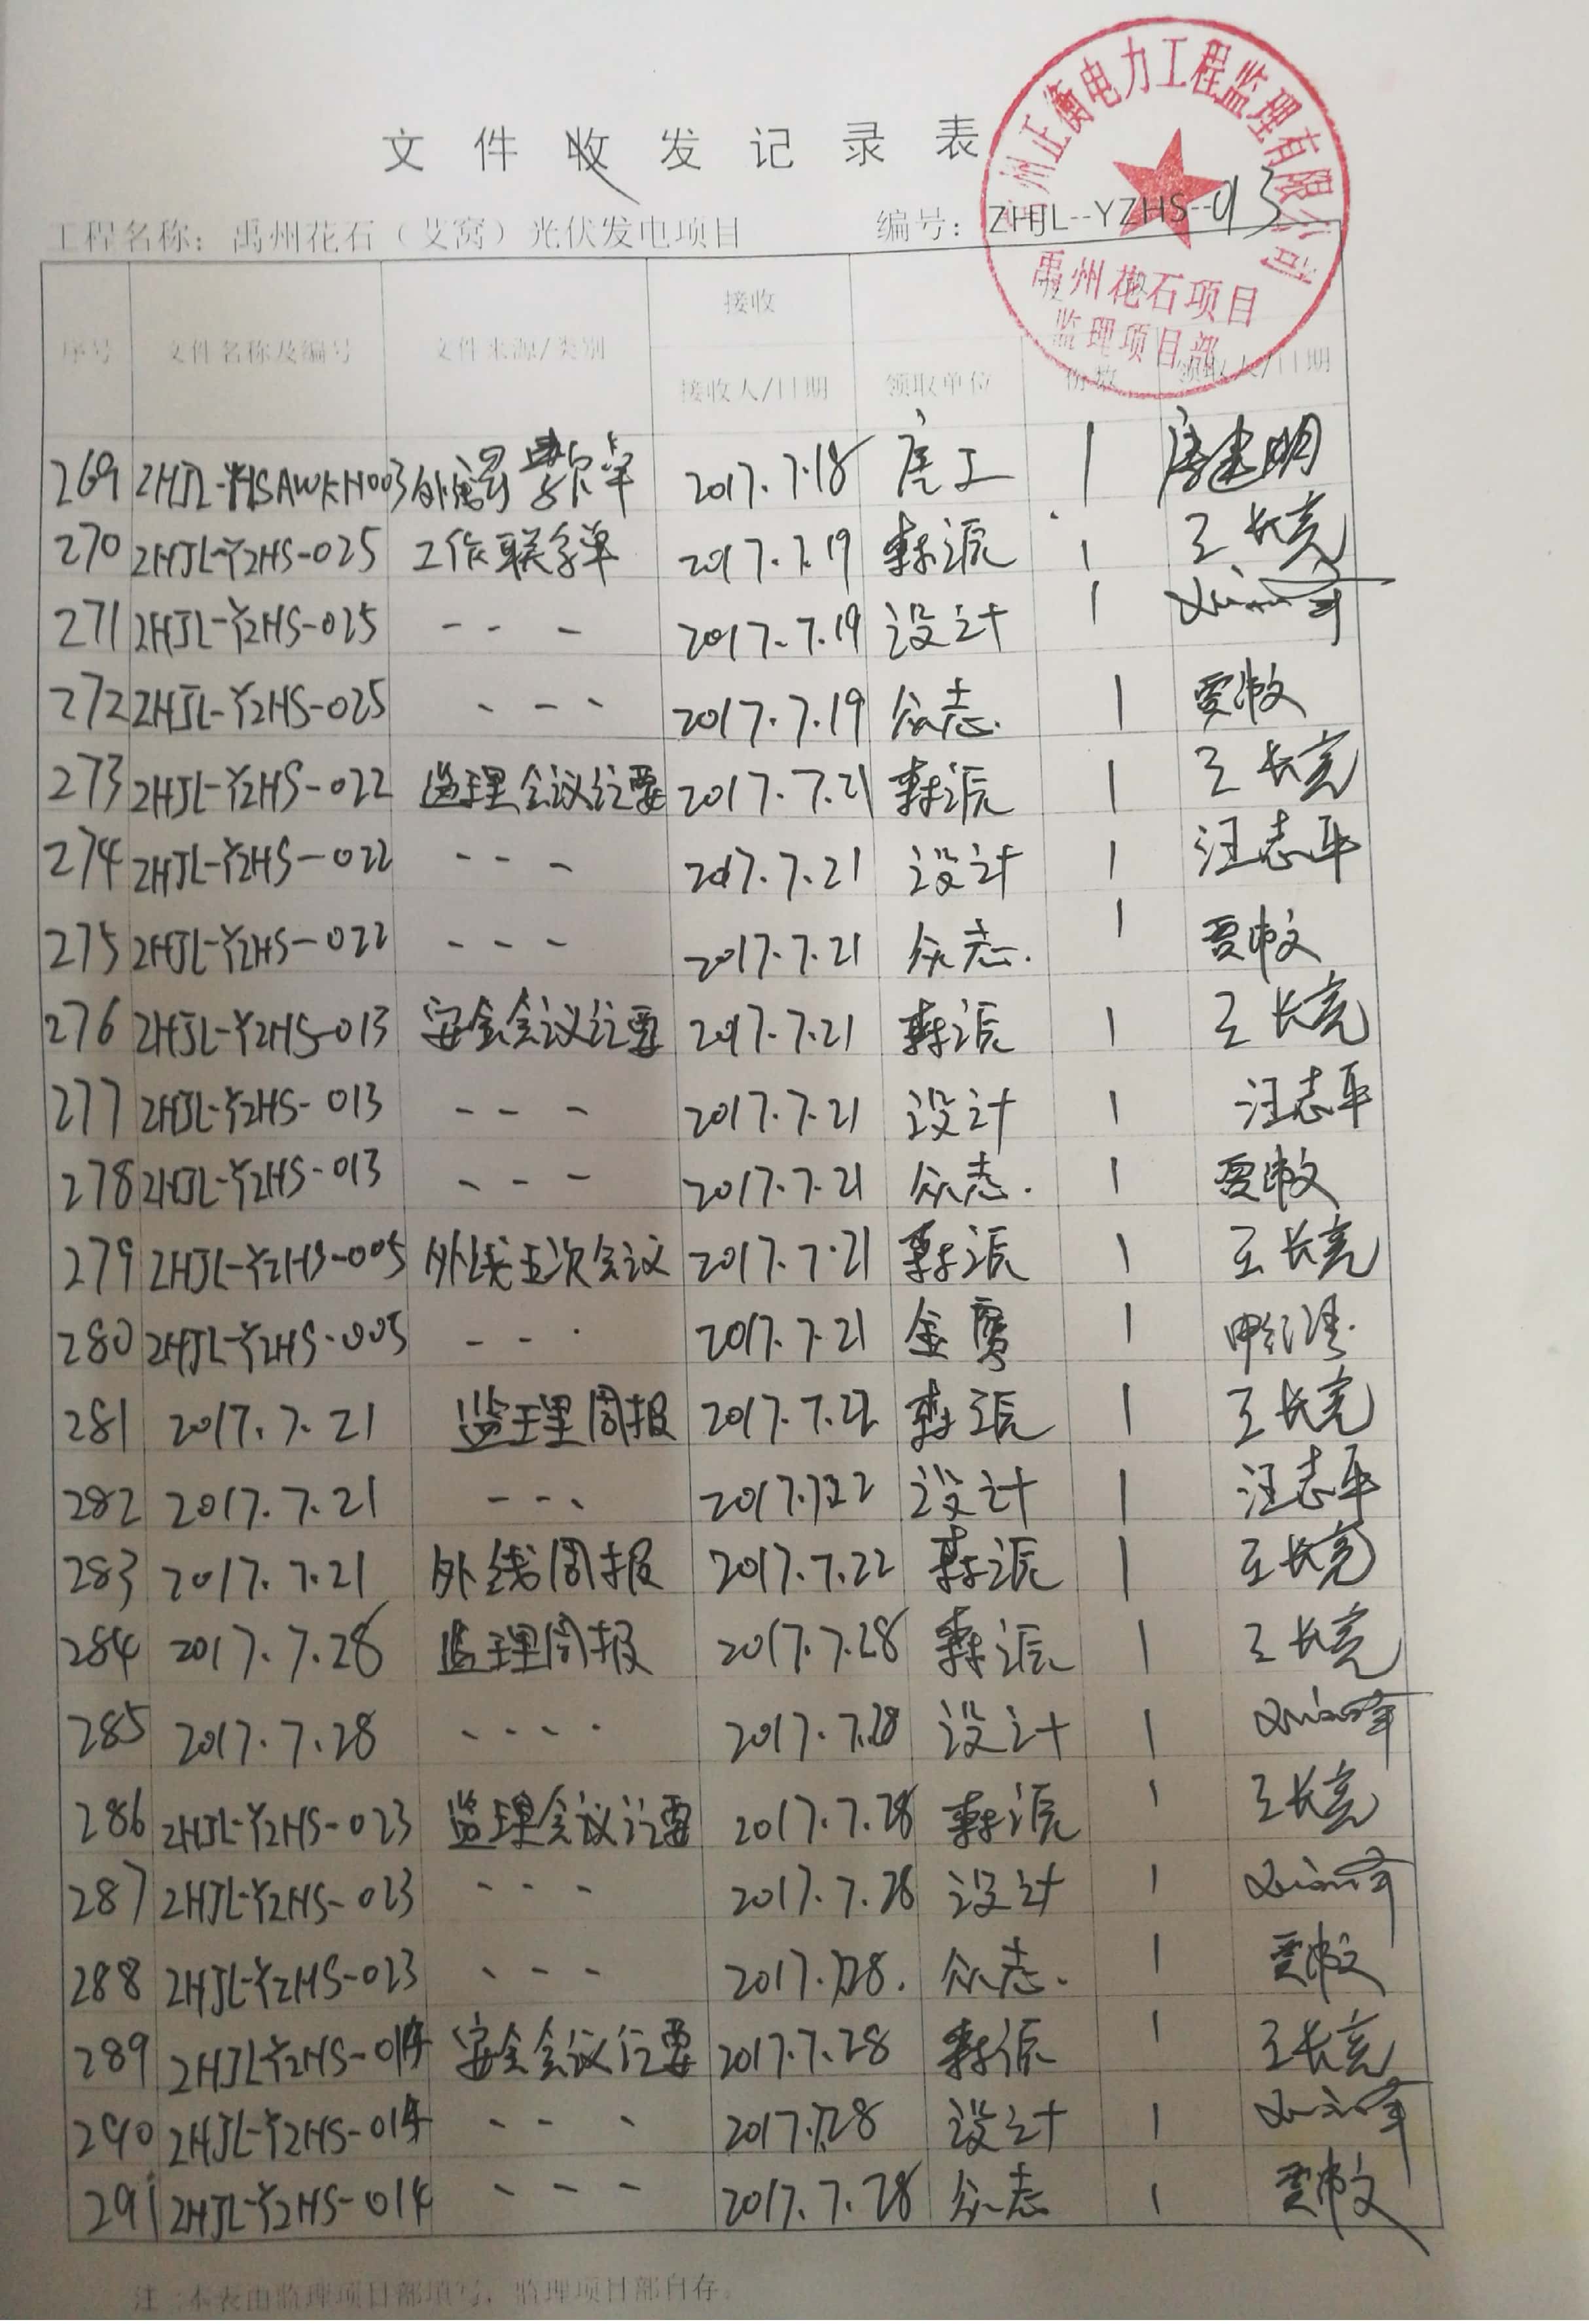 文件收发记录表
工程名称：禹州花石（艾窝）光伏发电项目 编号：ZHJL--YZHS--013
州正衡电力工程监理有限公司
禹州花石项目
监理项目部
序号 文件名称及编号 文件来源/类别 接收 接收人/日期 领取单位 份数 领取人/日期
269 ZHJL-YHSAWKH003 罚款单 2017.7.18 唐工 1 唐建明
270 ZHJL-YZHS-025 工作联系单 2017.7.19 森源 1 王长亮
271 ZHJL-YZHS-025 - - - 2017.7.19 设计 1
272 ZHJL-YZHS-025 - - - 2017.7.19 众志. 1
273 ZHJL-YZHS-022 监理会议纪要 2017.7.21 森源 1 王长亮
274 ZHJL-YZHS-022 - - - 2017.7.21 设计 1 汪志平
275 ZHJL-YZHS-022 - - - 2017.7.21 众志. 1
276 ZHJL-YZHS-013 安全会议纪要 2017.7.21 森源 1 王长亮
277 ZHJL-YZHS-013 - - - 2017.7.21 设计 1 汪志平
278 ZHJL-YZHS-013 - - - 2017.7.21 众志. 1
279 ZHJL-YZHS-005 外线五次会议 2017.7.21 森源 1 王长亮
280 ZHJL-YZHS-005 - - - 2017.7.21 1
281 2017.7.21 监理周报 2017.7.22 森源 1 王长亮
282 2017.7.21 - - - 2017.7.22 设计 1 汪志平
283 2017.7.21 外线周报 2017.7.22 森源 1 王长亮
284 2017.7.28 监理周报 2017.7.28 森源 1 王长亮
285 2017.7.28 - - - - 2017.7.28 设计 1
286 ZHJL-YZHS-023 监理会议纪要 2017.7.28 森源 1 王长亮
287 ZHJL-YZHS-023 - - - 2017.7.28 设计 1
288 ZHJL-YZHS-023 - - - 2017.7.28. 众志. 1
289 ZHJL-YZHS-014 安全会议纪要 2017.7.28 森源 1 王长亮
290 ZHJL-YZHS-014 - - - 2017.7.28 设计 1
291 ZHJL-YZHS-014 - - - 2017.7.28 众志 1
注：本表由监理项目部填写，监理项目部自存。